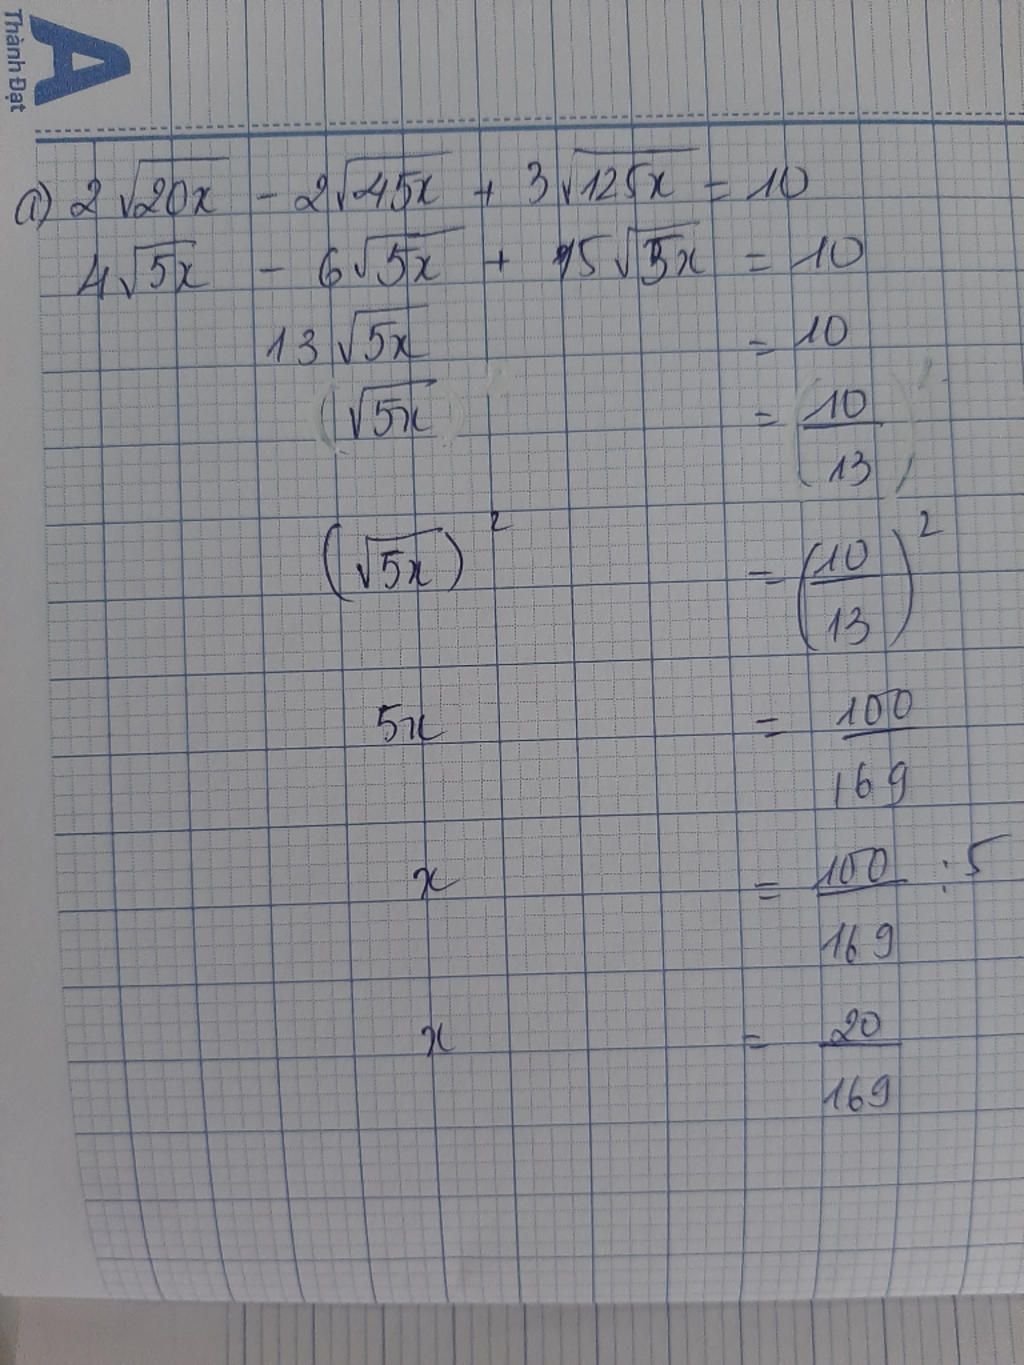 A
Thành Đạt
a) 2√20x - 2√45x + 3√125x = 10
4√5x - 6√5x + 15√5x = 10
13√5x = 10
(√5x) = (10/13)
(√5x)² = (10/13)²
5x = 100/169
x = 100/169 : 5
x = 20/169